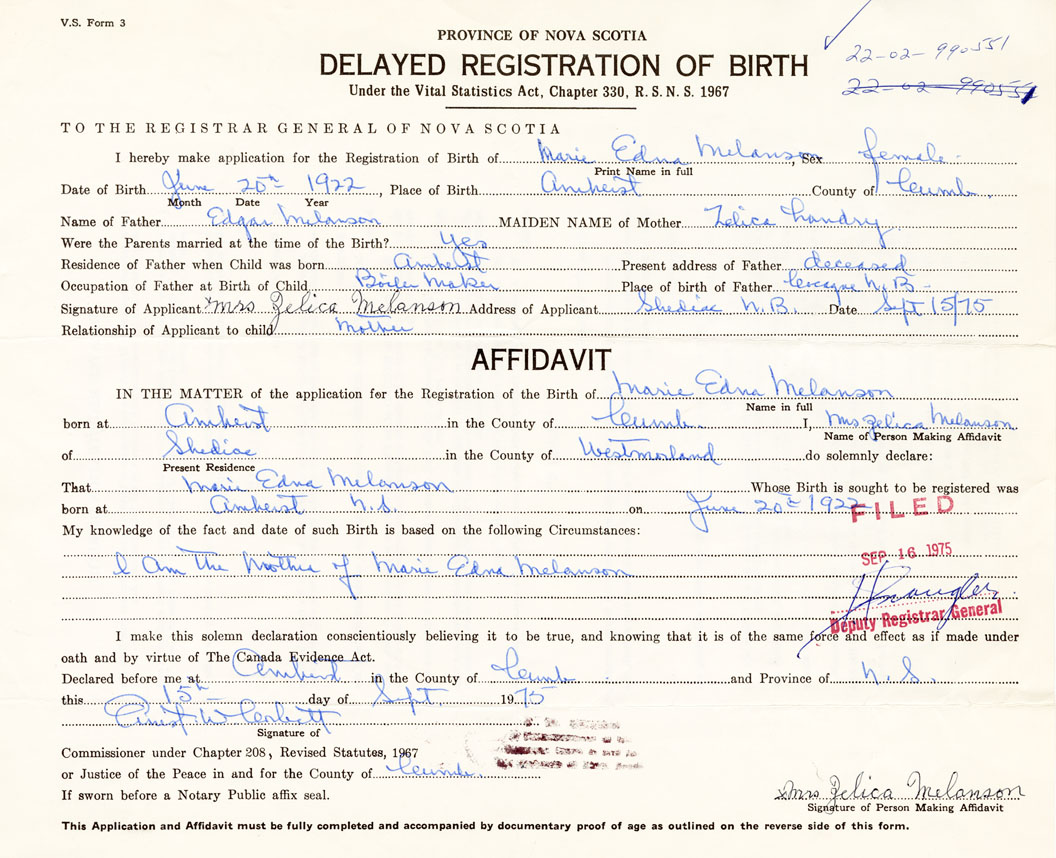 V.S. Form 3
PROVINCE OF NOVA SCOTIA
22-02-990551
DELAYED REGISTRATION OF BIRTH
22-02-990551
Under the Vital Statistics Act, Chapter 330, R.S.N.S. 1967
TO THE REGISTRAR GENERAL OF NOVA SCOTIA
I hereby make application for the Registration of Birth of Marie Edna Melanson, Sex female
Print Name in full
Date of Birth June 20th 1922, Place of Birth Amherst County of Cumb.
Month Date Year
Name of Father Edgar Melanson MAIDEN NAME of Mother Zelica Landry
Were the Parents married at the time of the Birth? Yes
Residence of Father when Child was born Amherst Present address of Father deceased
Occupation of Father at Birth of Child Boiler Maker Place of birth of Father Cocagne N.B.
Signature of Applicant x Mrs Zelica Melanson Address of Applicant Shediac N.B. Date Sept 15/75
Relationship of Applicant to child Mother
AFFIDAVIT
IN THE MATTER of the application for the Registration of the Birth of Marie Edna Melanson
Name in full
born at Amherst in the County of Cumb. I, Mrs Zelica Melanson
Name of Person Making Affidavit
of Shediac in the County of Westmorland do solemnly declare:
Present Residence
That Marie Edna Melanson Whose Birth is sought to be registered was
born at Amherst N.S. on June 20th 1922
FILED
My knowledge of the fact and date of such Birth is based on the following Circumstances:
SEP 16 1975
I Am The Mother of Marie Edna Melanson
Deputy Registrar General
I make this solemn declaration conscientiously believing it to be true, and knowing that it is of the same force and effect as if made under
oath and by virtue of The Canada Evidence Act.
Declared before me at Amherst in the County of Cumb. and Province of N.S.
this 15th day of Sept. 1975
Signature of
Commissioner under Chapter 208, Revised Statutes, 1967
or Justice of the Peace in and for the County of Cumb.
x Mrs Zelica Melanson
If sworn before a Notary Public affix seal.
Signature of Person Making Affidavit
This Application and Affidavit must be fully completed and accompanied by documentary proof of age as outlined on the reverse side of this form.